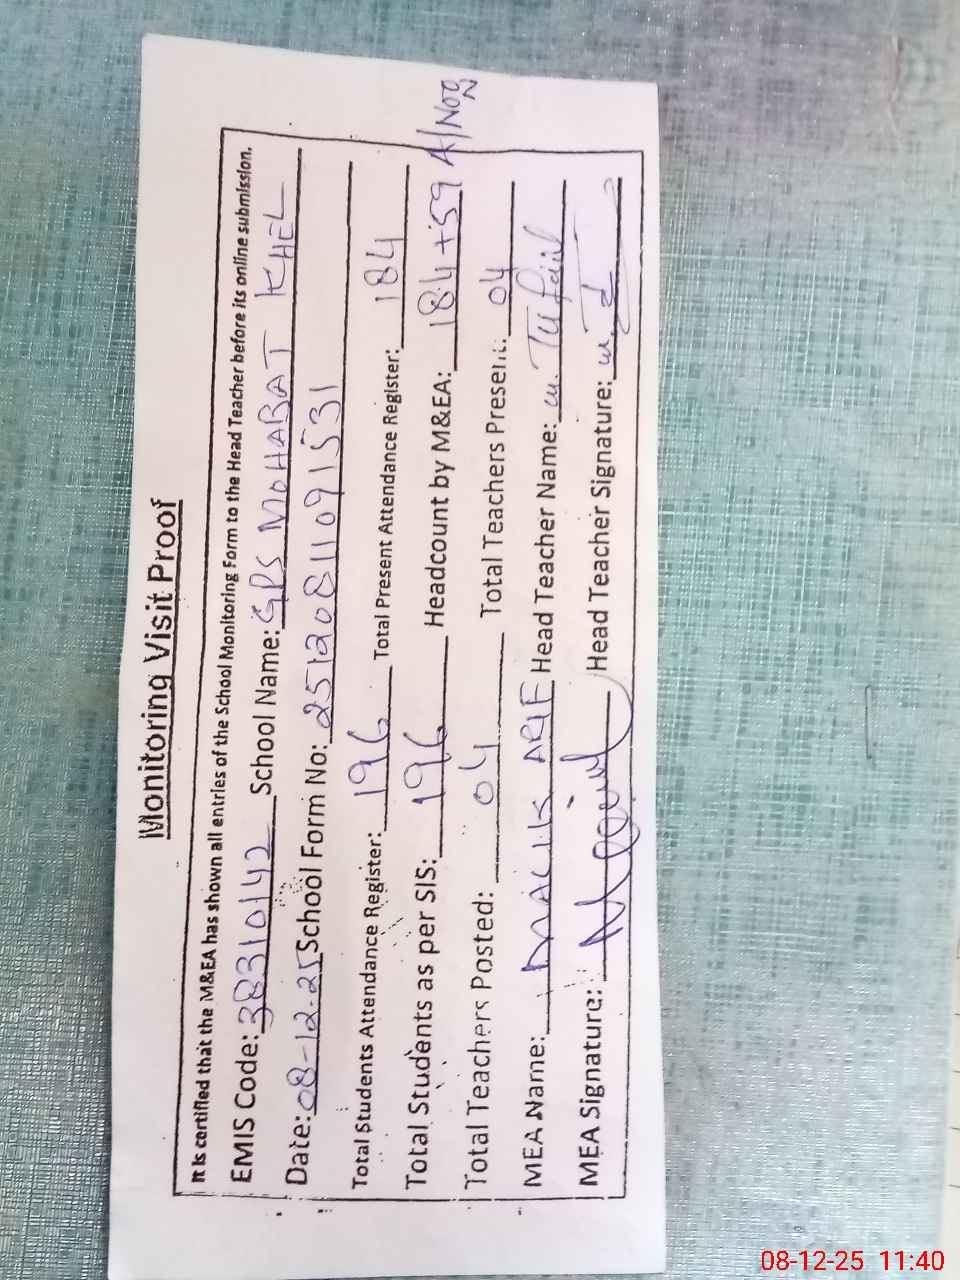 Monitoring Visit Proof
It is certified that the M&EA has shown all entries of the School Monitoring Form to the Head Teacher before its online submission.
EMIS Code: 38310142 School Name: GPS MOHABAT KHEL
Date: 08-12-25 School Form No: 25120811091531
Total Students Attendance Register: 196 Total Present Attendance Register: 184
Total Students as per SIS: 196 Headcount by M&EA: 184+59 A/Noon
Total Teachers Posted: 04 Total Teachers Present: 04
MEA Name: MALIK ARIF Head Teacher Name: M. Tufail
MEA Signature: Head Teacher Signature:
08-12-25 11:40